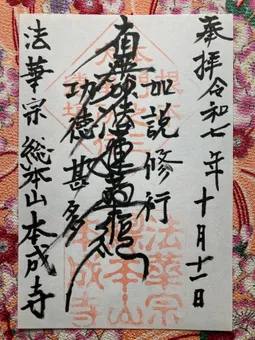 奉拝 令和七年十月十二日
如説修行
南無妙法蓮華経
功徳甚多
法華宗 総本山 本成寺
法華宗
総本山
本成寺